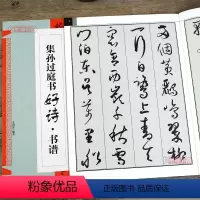 集孙过庭书好诗·书谱
两个黄鹂鸣翠柳
一行白鹭上青天
窗含西岭千秋雪
门泊东吴万里船
粉象优品